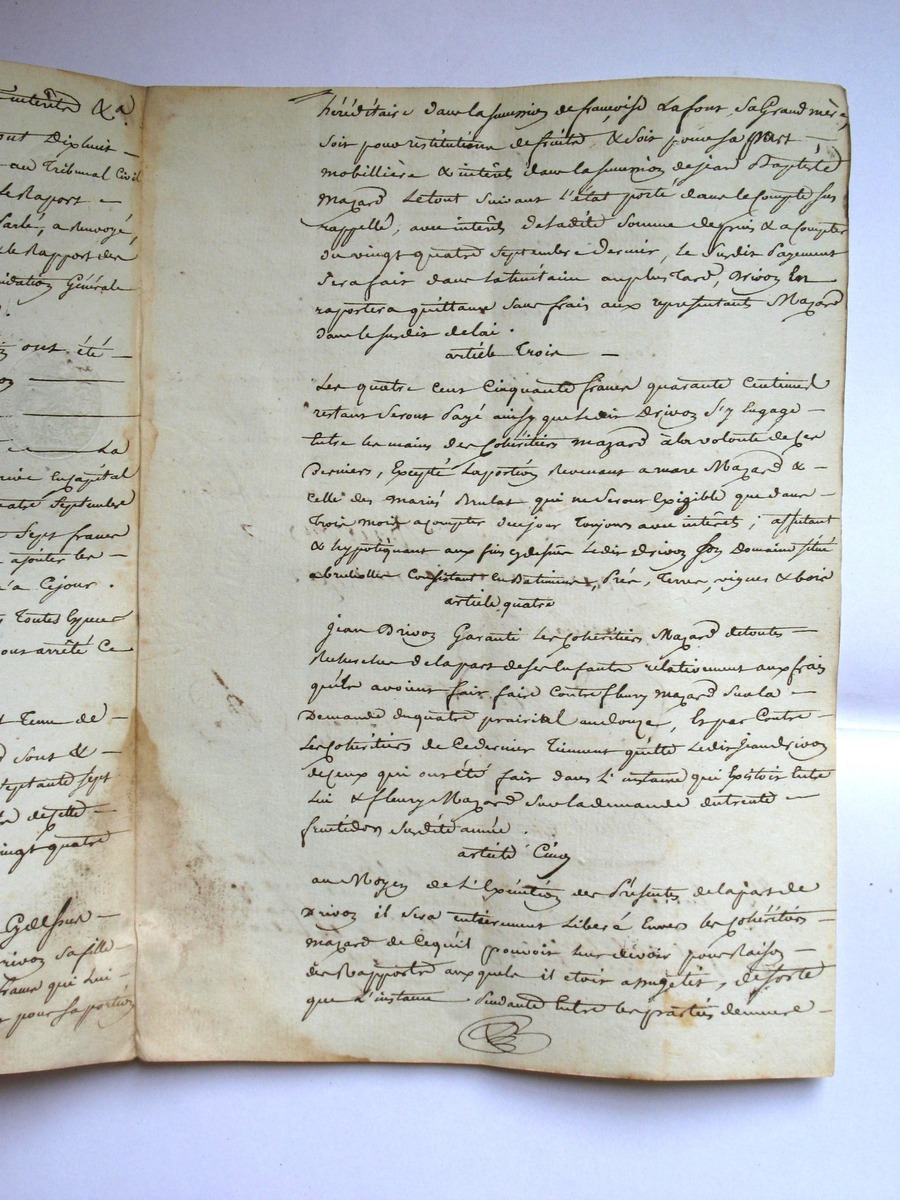 intérêts &a.
ont Dixhuit –
au Tribunal Civil
le Raport –
Parlé, a Renvoyé,
le Rapport des
Liquidation Générale
ont été –
La
en Capital
quatre Septembre
Sept francs
ajouter les –
a Cejour.
Toutes Especes
Vous arrêté Ce
Tenu de –
Sont & –
Septante Sept
de Cette –
vingt quatre
Cydessus –
Drivon Sa fille –
francs qui Lui –
pour Sa portion
héréditaire dans la succession de françoise Lafont, Sa Grand mère,
Soit pour restitution de fruits, & Soit pour Sa part –
mobillière & intérêt dans la succession de Jean Baptiste
Mazard Letout Suivant L'état porté dans le Compte Sus
rappellé, avec intérêts de Ladite Somme depuis & a Compter
du vingt quatre Septembre Dernier, le Susdit Payement
Sera fait dans la huitaine au plus Tard, Drivon En
raportera quittance Sans frais aux representants Mazard
dans le Susdit delai.
article Trois –
Les quatre Cent Cinquante francs quarante Centimes
restant Seront Payé ainsy que Ledit Drivon S'y Engage –
Entre les mains des Cohéritiers Mazard à la volonté de Ces
Derniers, Excepté La portion Revenant a Mazard & –
Celle des mariés Brulat qui ne Seront Exigible que dans –
Trois mois a Compter du jour Toujours avec intérêts; affectant
& hypotéquant aux fins cydessus Ledit Drivon Son Domaine Situé
Consistant en Batiments, Prés, Terres, vignes & bois
article quatre
Jean Drivon Garanti Les Cohéritiers Mazard detoutes –
Recherches de la part de Ses Enfants relativement aux frais
qu'ils avoient fait faire Contre fleury Mazard Sur la –
Demande du quatre prairial an douze, Et par Contre –
Les Cohéritiers de Ce dernier Tiennent quitte Ledit Jean Drivon
de Ceux qui ont été fait dans L'instance qui Existoit Entre
Lui & fleury Mazard Sur la demande du trente –
Susdite année.
article Cinq
au Moyen de L'Exécution des Présentes de la part de
Drivon il Sera entierement Libéré Envers les Cohéritiers –
Mazard de Cequil pouvoit leur devoir pour Raison –
des Rapports auxquels il etoit assugétis, de Sorte
que L'instance Pendante Entre les parties demeure –